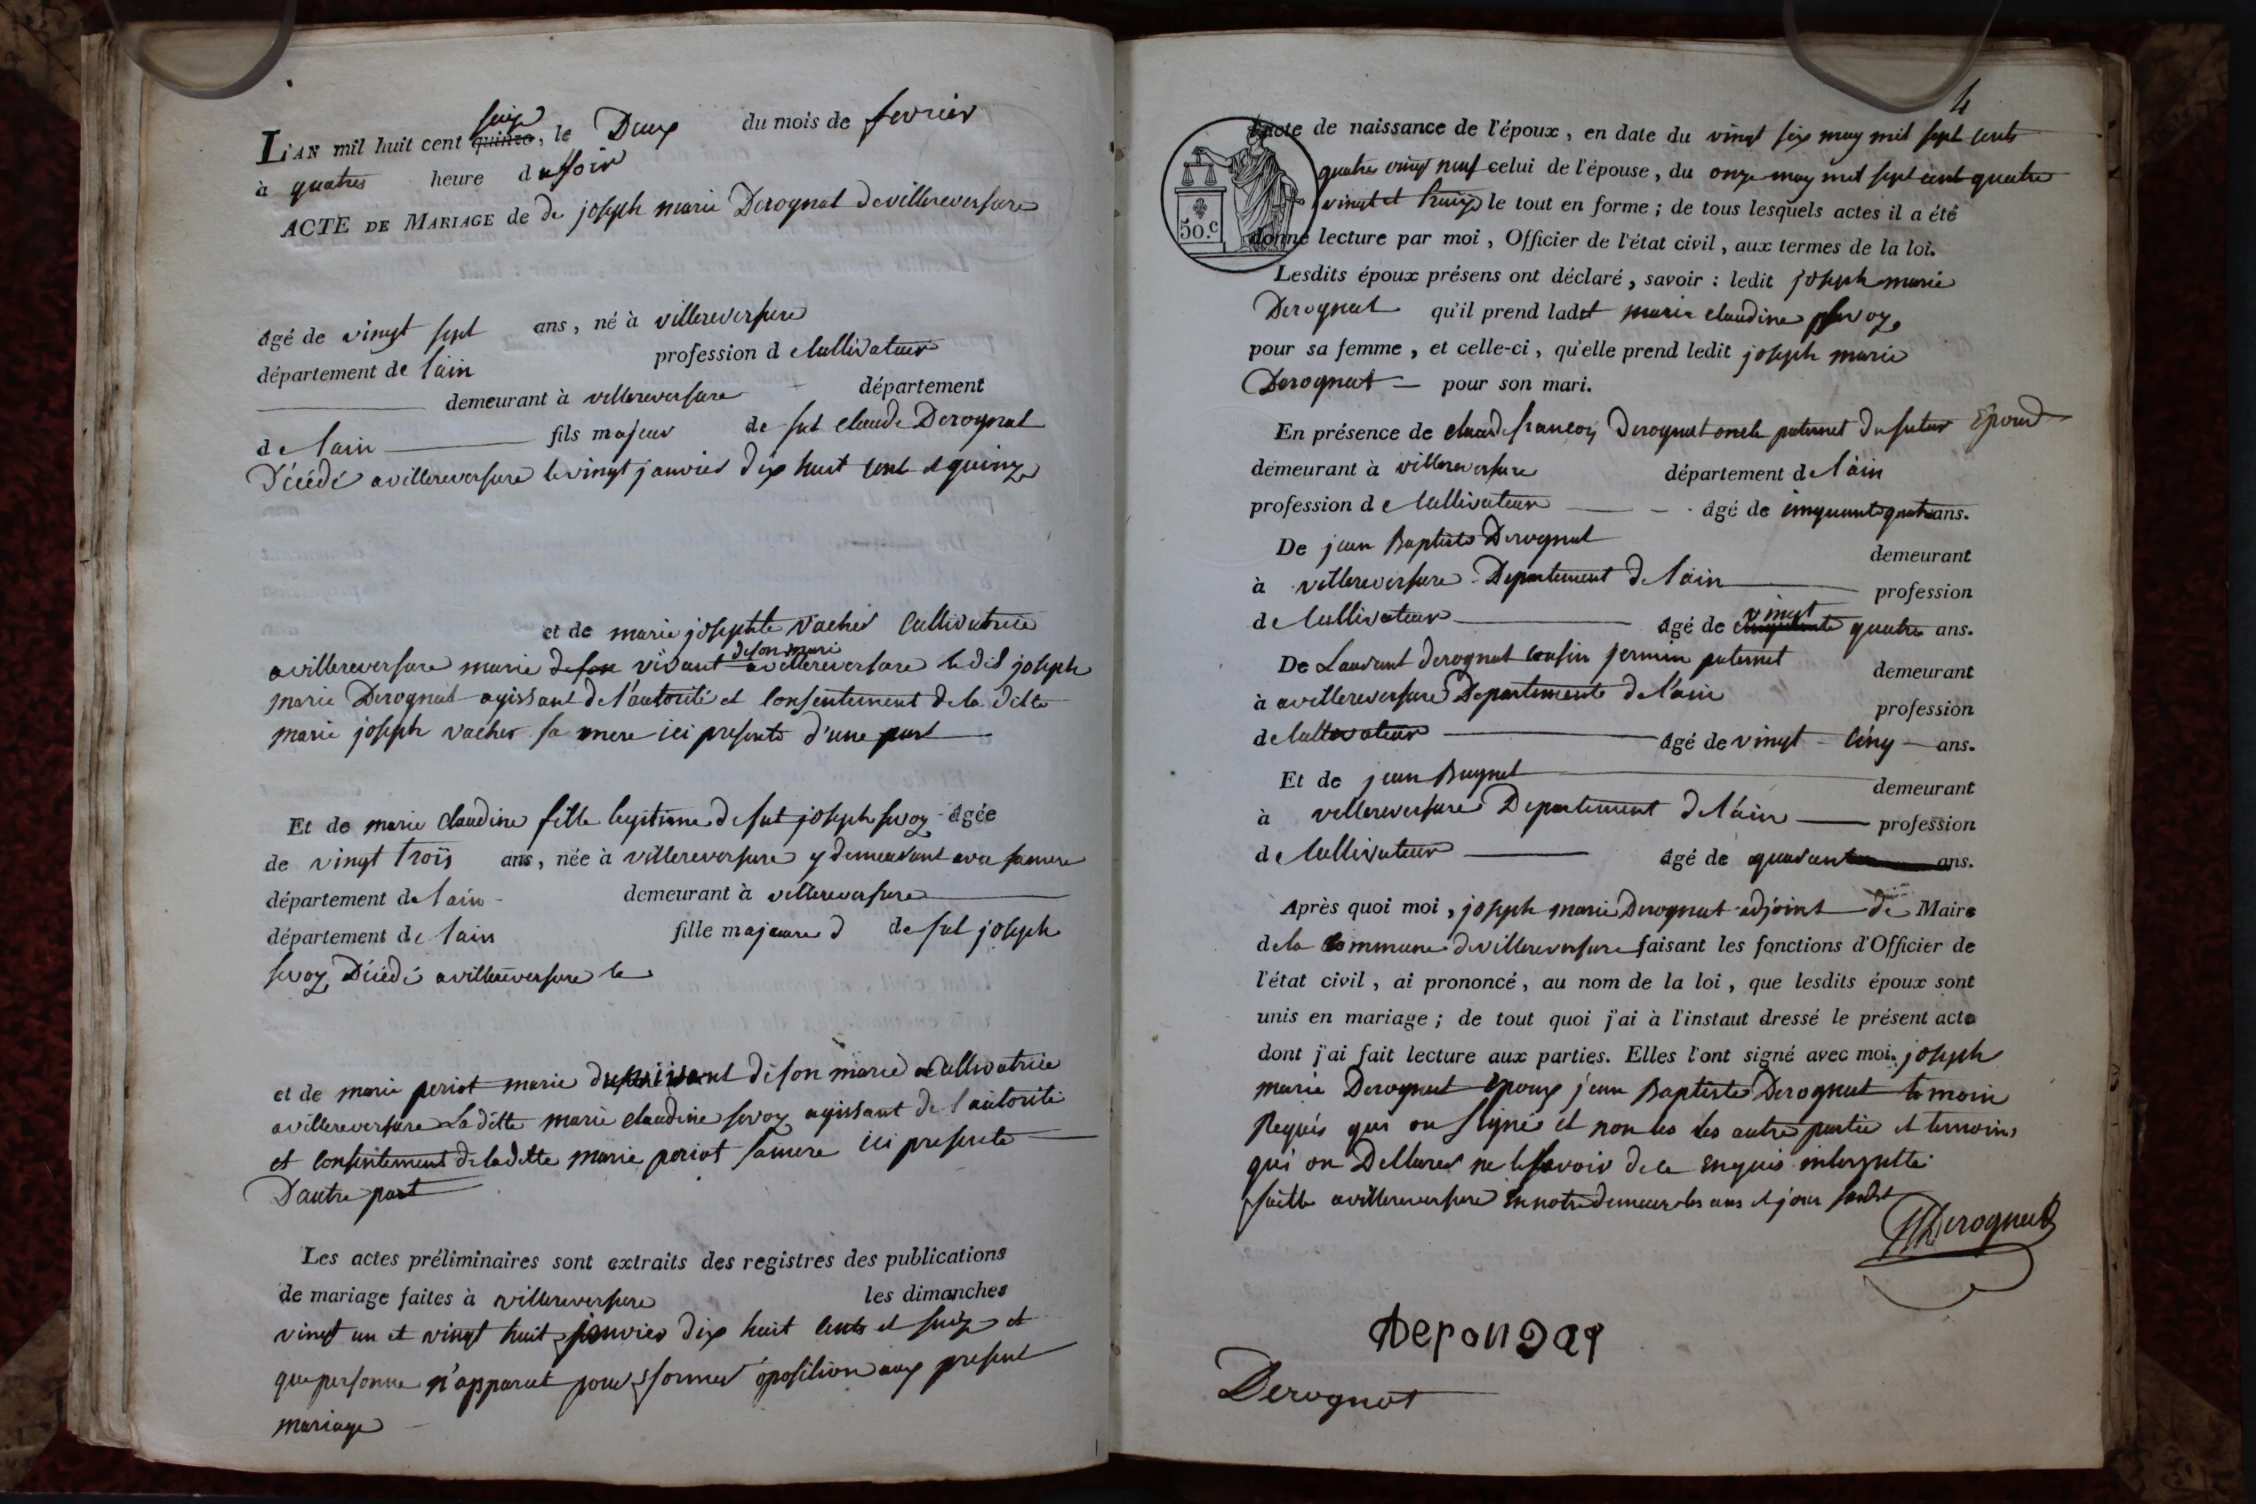 L'AN mil huit cent quinze seize, le Deux du mois de fevrier
à quatres heure du soir
ACTE DE MARIAGE de De joseph marie Derognat de villereversure
âgé de vingt sept ans, né à villereversure
département de l'ain profession de Cultivateur
demeurant à villereversure département
de l'ain fils majeur de fut claude Derognat
Décédé a villereversure le vingt janvier dix huit cent et quinze
et de marie josephte vacher Cultivatrice
de son mari
a villereversure marie vivant a villereversure le dit joseph
marie Derognat agissant de l'autorité et Consentement de la ditte
marie joseph vacher sa mere ici presente d'une part
Et de marie claudine fille legitime de fut joseph sevoz âgée
de vingt trois ans, née à villereversure y demeurant avec sa mere
département de l'ain demeurant à villereversure
département de l'ain fille majeure d de fut joseph
sevoz Décédé a villereversure le
et de marie periot marie de son marie Cultivatrice
a villereversure La ditte marie claudine sevoz agissant de l'autorité
et Consentement de la ditte marie periot sa mere ici presente
D'autre part
Les actes préliminaires sont extraits des registres des publications
de mariage faites à villereversure les dimanches
vingt un et vingt huit janvier dix huit cents et seize et
que personne n'apparut pour former oposition aux present
mariage
4
L'acte de naissance de l'époux, en date du vingt six may mil sept cents
quatres vingt neuf celui de l'épouse, du onze may mil sept cent quatre
vingt et treize le tout en forme ; de tous lesquels actes il a été
50.c
donné lecture par moi, Officier de l'état civil, aux termes de la loi.
Lesdits époux présens ont déclaré, savoir : ledit joseph marie
Derognat qu'il prend ladit marie claudine sevoz
pour sa femme, et celle-ci, qu'elle prend ledit joseph marie
Derognat pour son mari.
En présence de claude francois Derognat oncle paternel du futur Epoud
demeurant à villereversure département de l'ain
profession de Cultivateur âgé de cinquante quatre ans.
De jean Baptiste Derognat demeurant
à villereversure Departement de l'ain profession
de Cultivateur âgé de vingt quatre ans.
De Laurant derognat cousin jermin paternel demeurant
à a villereversure Departemente de l'ain profession
de Cultivateur âgé de vingt Cinq ans.
Et de jean Buynet demeurant
à villereversure Departement de l'ain profession
de Cultivateur âgé de quarante ans.
Après quoi moi, joseph marie Derognat adjoint de Maire
de la Commune de villereversure faisant les fonctions d'Officier de
l'état civil, ai prononcé, au nom de la loi, que lesdits époux sont
unis en mariage ; de tout quoi j'ai à l'instaut dressé le présent acte
dont j'ai fait lecture aux parties. Elles l'ont signé avec moi. joseph
marie Derognat Epoux jean Baptiste Derognat temoin
Requis qui on signé et non les autre partie et temoins
qui on Dellarer ne le savoir de ce enquis
faitte a villereversure en notre demeure les ans et jour
Derognat
Derognat